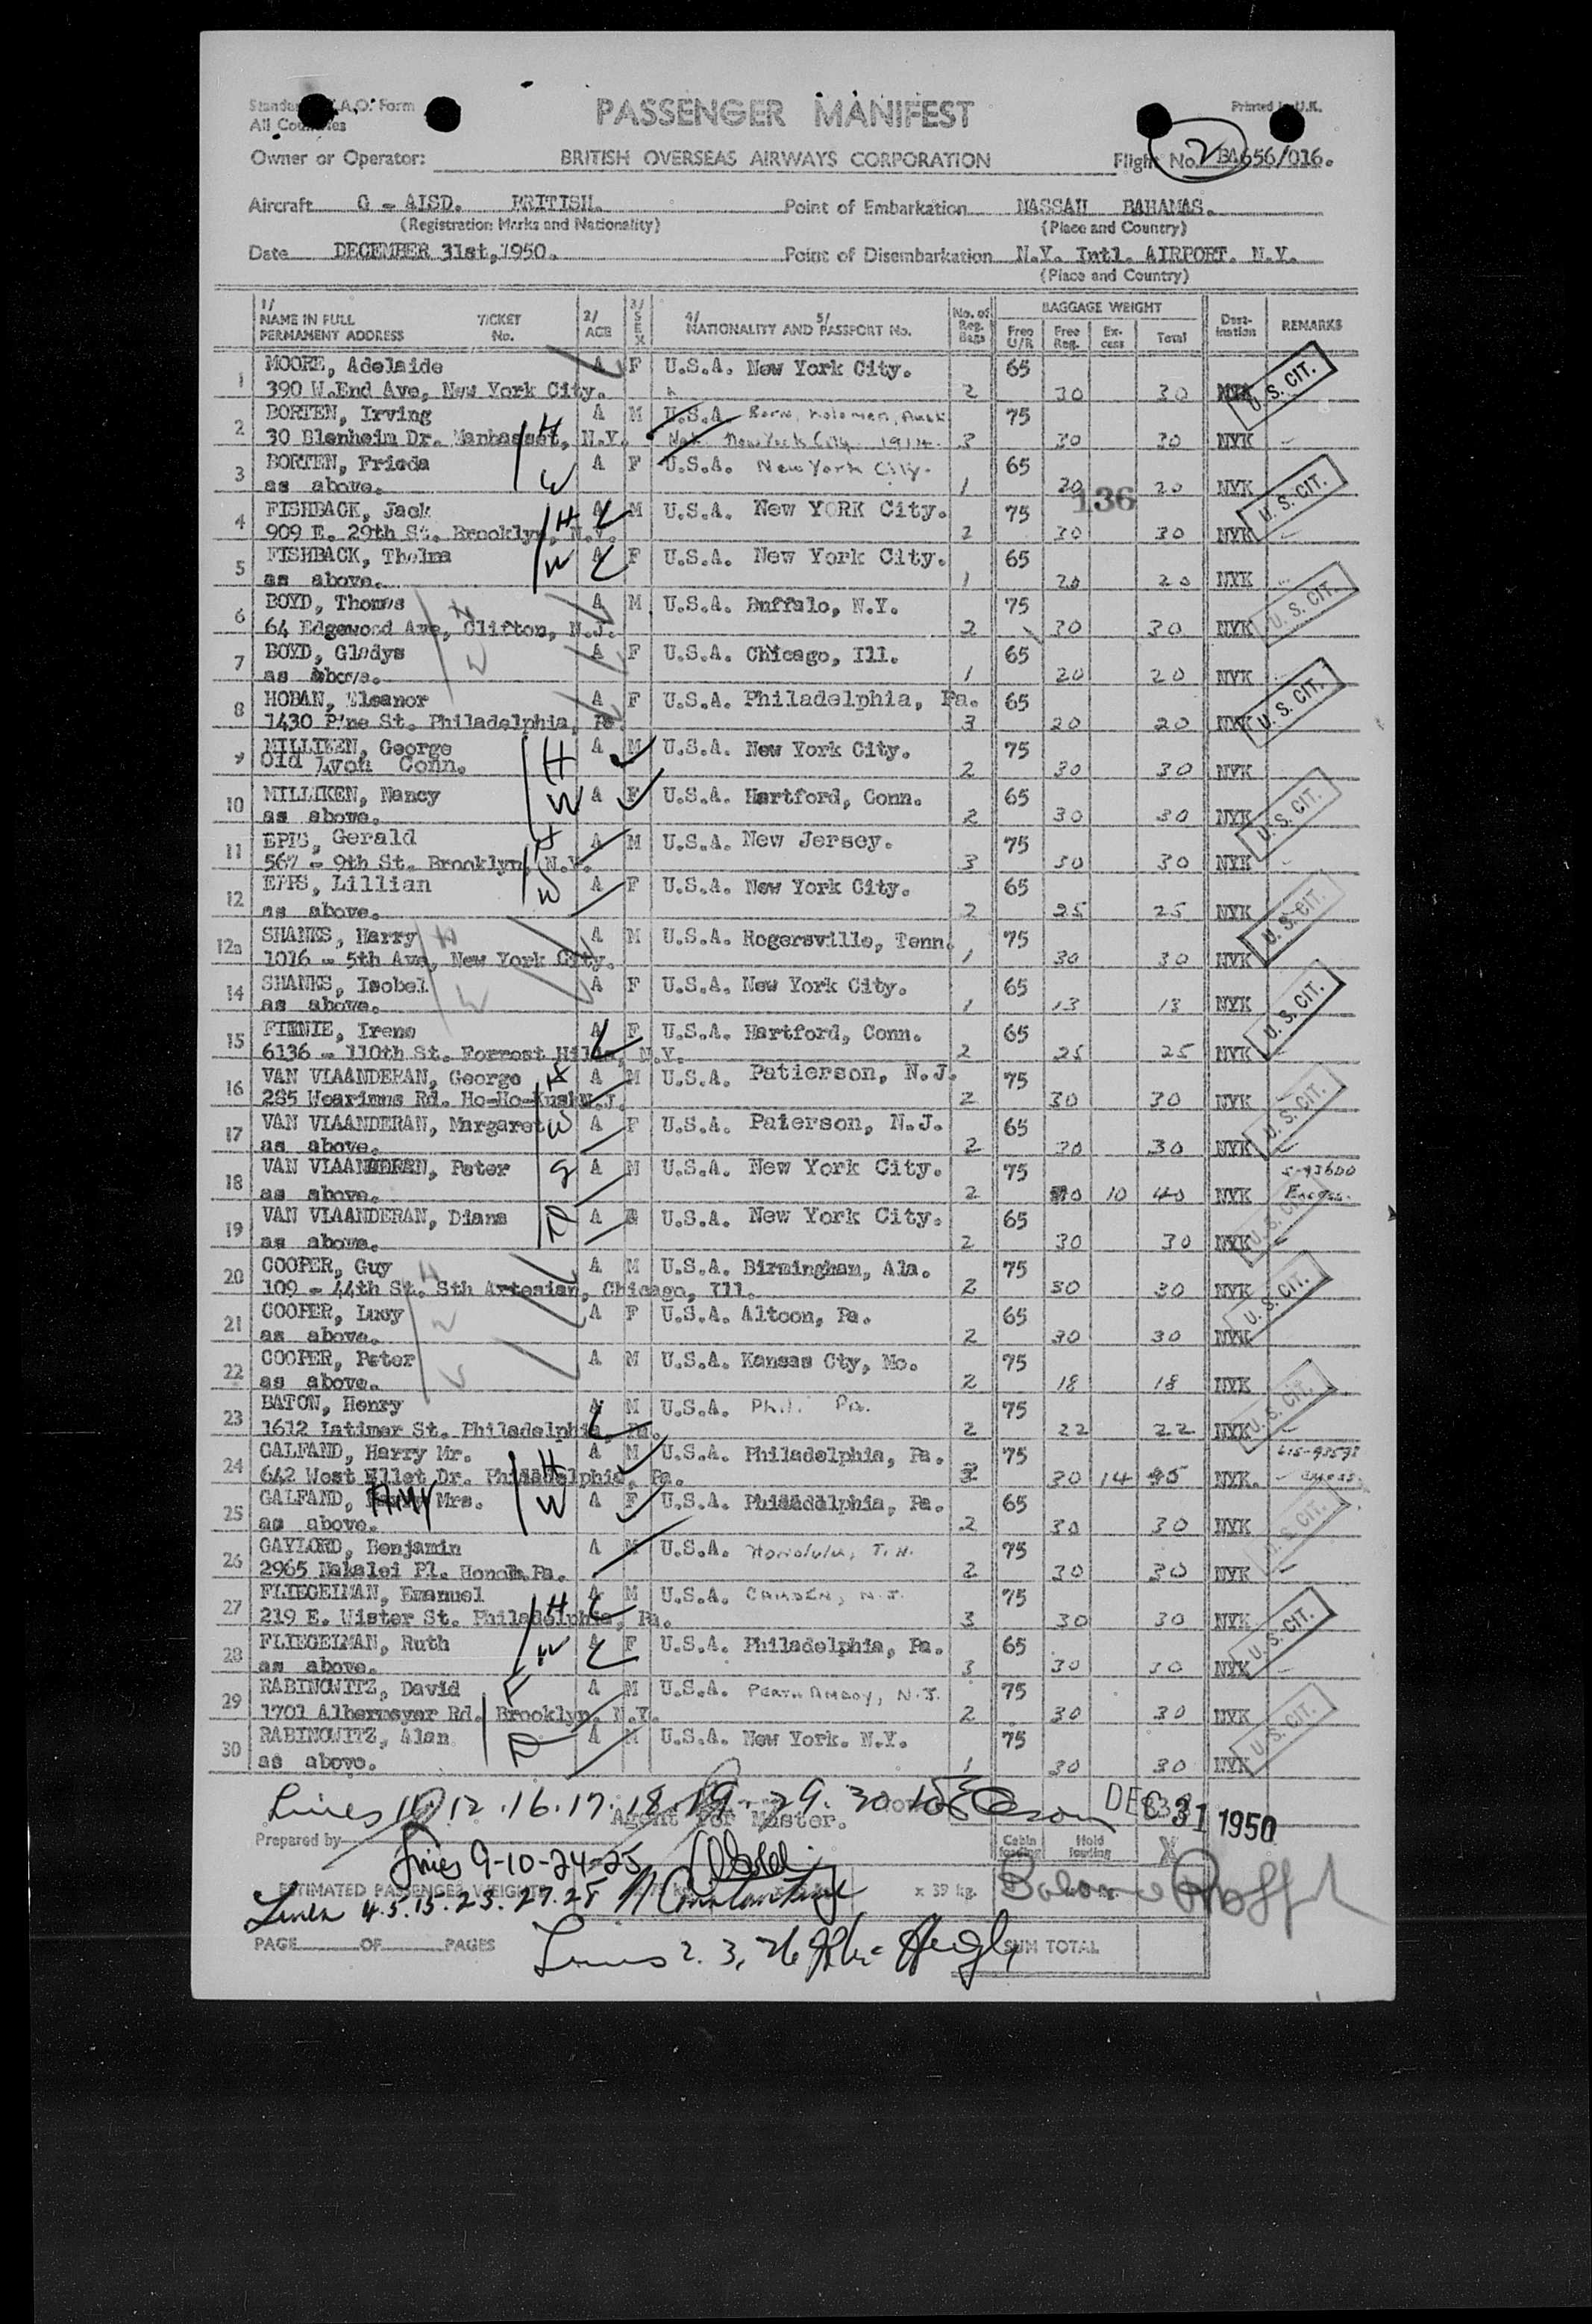 PASSENGER MANIFEST
All Countries
Printed in U.K.
Owner or Operator: BRITISH OVERSEAS AIRWAYS CORPORATION Flight No. BA656/016.
2
Aircraft G - AISD. BRITISH. Point of Embarkation NASSAU BAHAMAS.
(Registration Marks and Nationality) (Place and Country)
Date DECEMBER 31st, 1950. Point of Disembarkation N.Y. Intl. AIRPORT. N.Y.
(Place and Country)
1/ NAME IN FULL PERMANENT ADDRESS TICKET No. 2/ AGE 3/ SEX 4/ 5/ NATIONALITY AND PASSPORT No. No. of Reg. Bags BAGGAGE WEIGHT Free U/R Free Reg. Ex-cess Total Dest-ination REMARKS
1 MOORE, Adelaide A F U.S.A. New York City. 65
390 W.End Ave, New York City. 2 30 30 U.S. CIT.
2 BORTEN, Irving A M U.S.A. Born 75
30 Blenheim Dr. Manhasset, N.Y. H Nat. New York City 1914. 3 30 30 NYK
3 BORTEN, Frieda W A F U.S.A. New York City. 65
as above. 1 20 20 NYK U.S. CIT.
136
4 FISHBACK, Jack H A M U.S.A. New YORK City. 75
909 E. 29th St. Brooklyn, N.Y. 2 30 30 NYK
5 FISHBACK, Thelma W A F U.S.A. New York City. 65
as above. 1 20 20 NYK
6 BOYD, Thomas H A M U.S.A. Buffalo, N.Y. 75
64 Edgewood Ave, Clifton, N.J. 2 30 30 NYK U.S. CIT.
7 BOYD, Gladys W A F U.S.A. Chicago, Ill. 65
as above. 1 20 20 NYK
8 HOBAN, Eleanor A F U.S.A. Philadelphia, Pa. 65
1430 Pine St. Philadelphia, Pa. 3 20 20 NYK U.S. CIT.
9 MILLIKEN, George H A M U.S.A. New York City. 75
Old Lyon Conn. 2 30 30 NYK
10 MILLIKEN, Nancy W A F U.S.A. Hartford, Conn. 65
as above. 2 30 30 NYK U.S. CIT.
11 EPPS, Gerald H A M U.S.A. New Jersey. 75
567 - 9th St. Brooklyn, N.Y. 3 30 30 NYK
12 EPPS, Lillian W A F U.S.A. New York City. 65
as above. 2 25 25 NYK U.S. CIT.
12a SHANKS, Harry H A M U.S.A. Rogersville, Tenn. 75
1016 - 5th Ave, New York City. 1 30 30 NYK
14 SHANKS, Isobel W A F U.S.A. New York City. 65
as above. 1 13 13 NYK U.S. CIT.
15 FIENIE, Irene A F U.S.A. Hartford, Conn. 65
6136 - 110th St. Forrest Hills, N.Y. 2 25 25 NYK
16 VAN VLAANDERAN, George H A M U.S.A. Patierson, N.J. 75
285 Wearimus Rd. Ho-Ho-Kus N.J. 2 30 30 NYK U.S. CIT.
17 VAN VLAANDERAN, Margaret W A F U.S.A. Paterson, N.J. 65
as above. 2 30 30 NYK
18 VAN VLAANDERAN, Peter S A M U.S.A. New York City. 75
as above. 2 30 10 40 NYK
19 VAN VLAANDERAN, Diana D A U.S.A. New York City. 65
as above. 2 30 30 NYK U.S. CIT.
20 COOPER, Guy H A M U.S.A. Birmingham, Ala. 75
109 - 44th St. Sth Artesian, Chicago, Ill. 2 30 30 NYK
21 COOPER, Lucy W A F U.S.A. Altoon, Pa. 65
as above. 2 30 30 NYK U.S. CIT.
22 COOPER, Peter A M U.S.A. Kansas Cty, Mo. 75
as above. 2 18 18 NYK
23 BATON, Henry A M U.S.A. Phil. Pa. 75
1612 Latimer St. Philadelphia, Pa. 2 22 22 NYK U.S. CIT.
24 GALFAND, Harry Mr. H A M U.S.A. Philadelphia, Pa. 75
642 West Ellet Dr. Philadelphia, Pa. 30 14 NYK.
25 GALFAND, Amy Mrs. W A F U.S.A. Philadelphia, Pa. 65
as above. 2 30 30 NYK U.S. CIT.
26 GAYLORD, Benjamin A M U.S.A. Honolulu, T.H. 75
2965 Makalei Pl. Pa. 2 30 30 NYK
27 FLIEGELMAN, Emanuel H A M U.S.A. CAMDEN, N.J. 75
219 E. Wister St. Philadelphia, Pa. 3 30 30 NYK
28 FLIEGELMAN, Ruth W A F U.S.A. Philadelphia, Pa. 65
as above. 3 30 30 NYK U.S. CIT.
29 RABINOWITZ, David F A M U.S.A. PERTH AMBOY, N.J. 75
1701 Albermeyer Rd. Brooklyn. N.Y. 2 30 30 NYK
30 RABINOWITZ, Alan A M U.S.A. New York. N.Y. 75
as above. 1 30 30 NYK U.S. CIT.
Lines 11.12.16.17.18.19.29.30
DEC 31 1950
Agent for Master.
Prepared by
Cabin loading Hold loading
Lines 9-10-24-25
ESTIMATED PASSENGER WEIGHT x 39 kg.
Lines 4.5.15.23.27.28
PAGE OF PAGES
Lines 2. 3, 26
SUM TOTAL